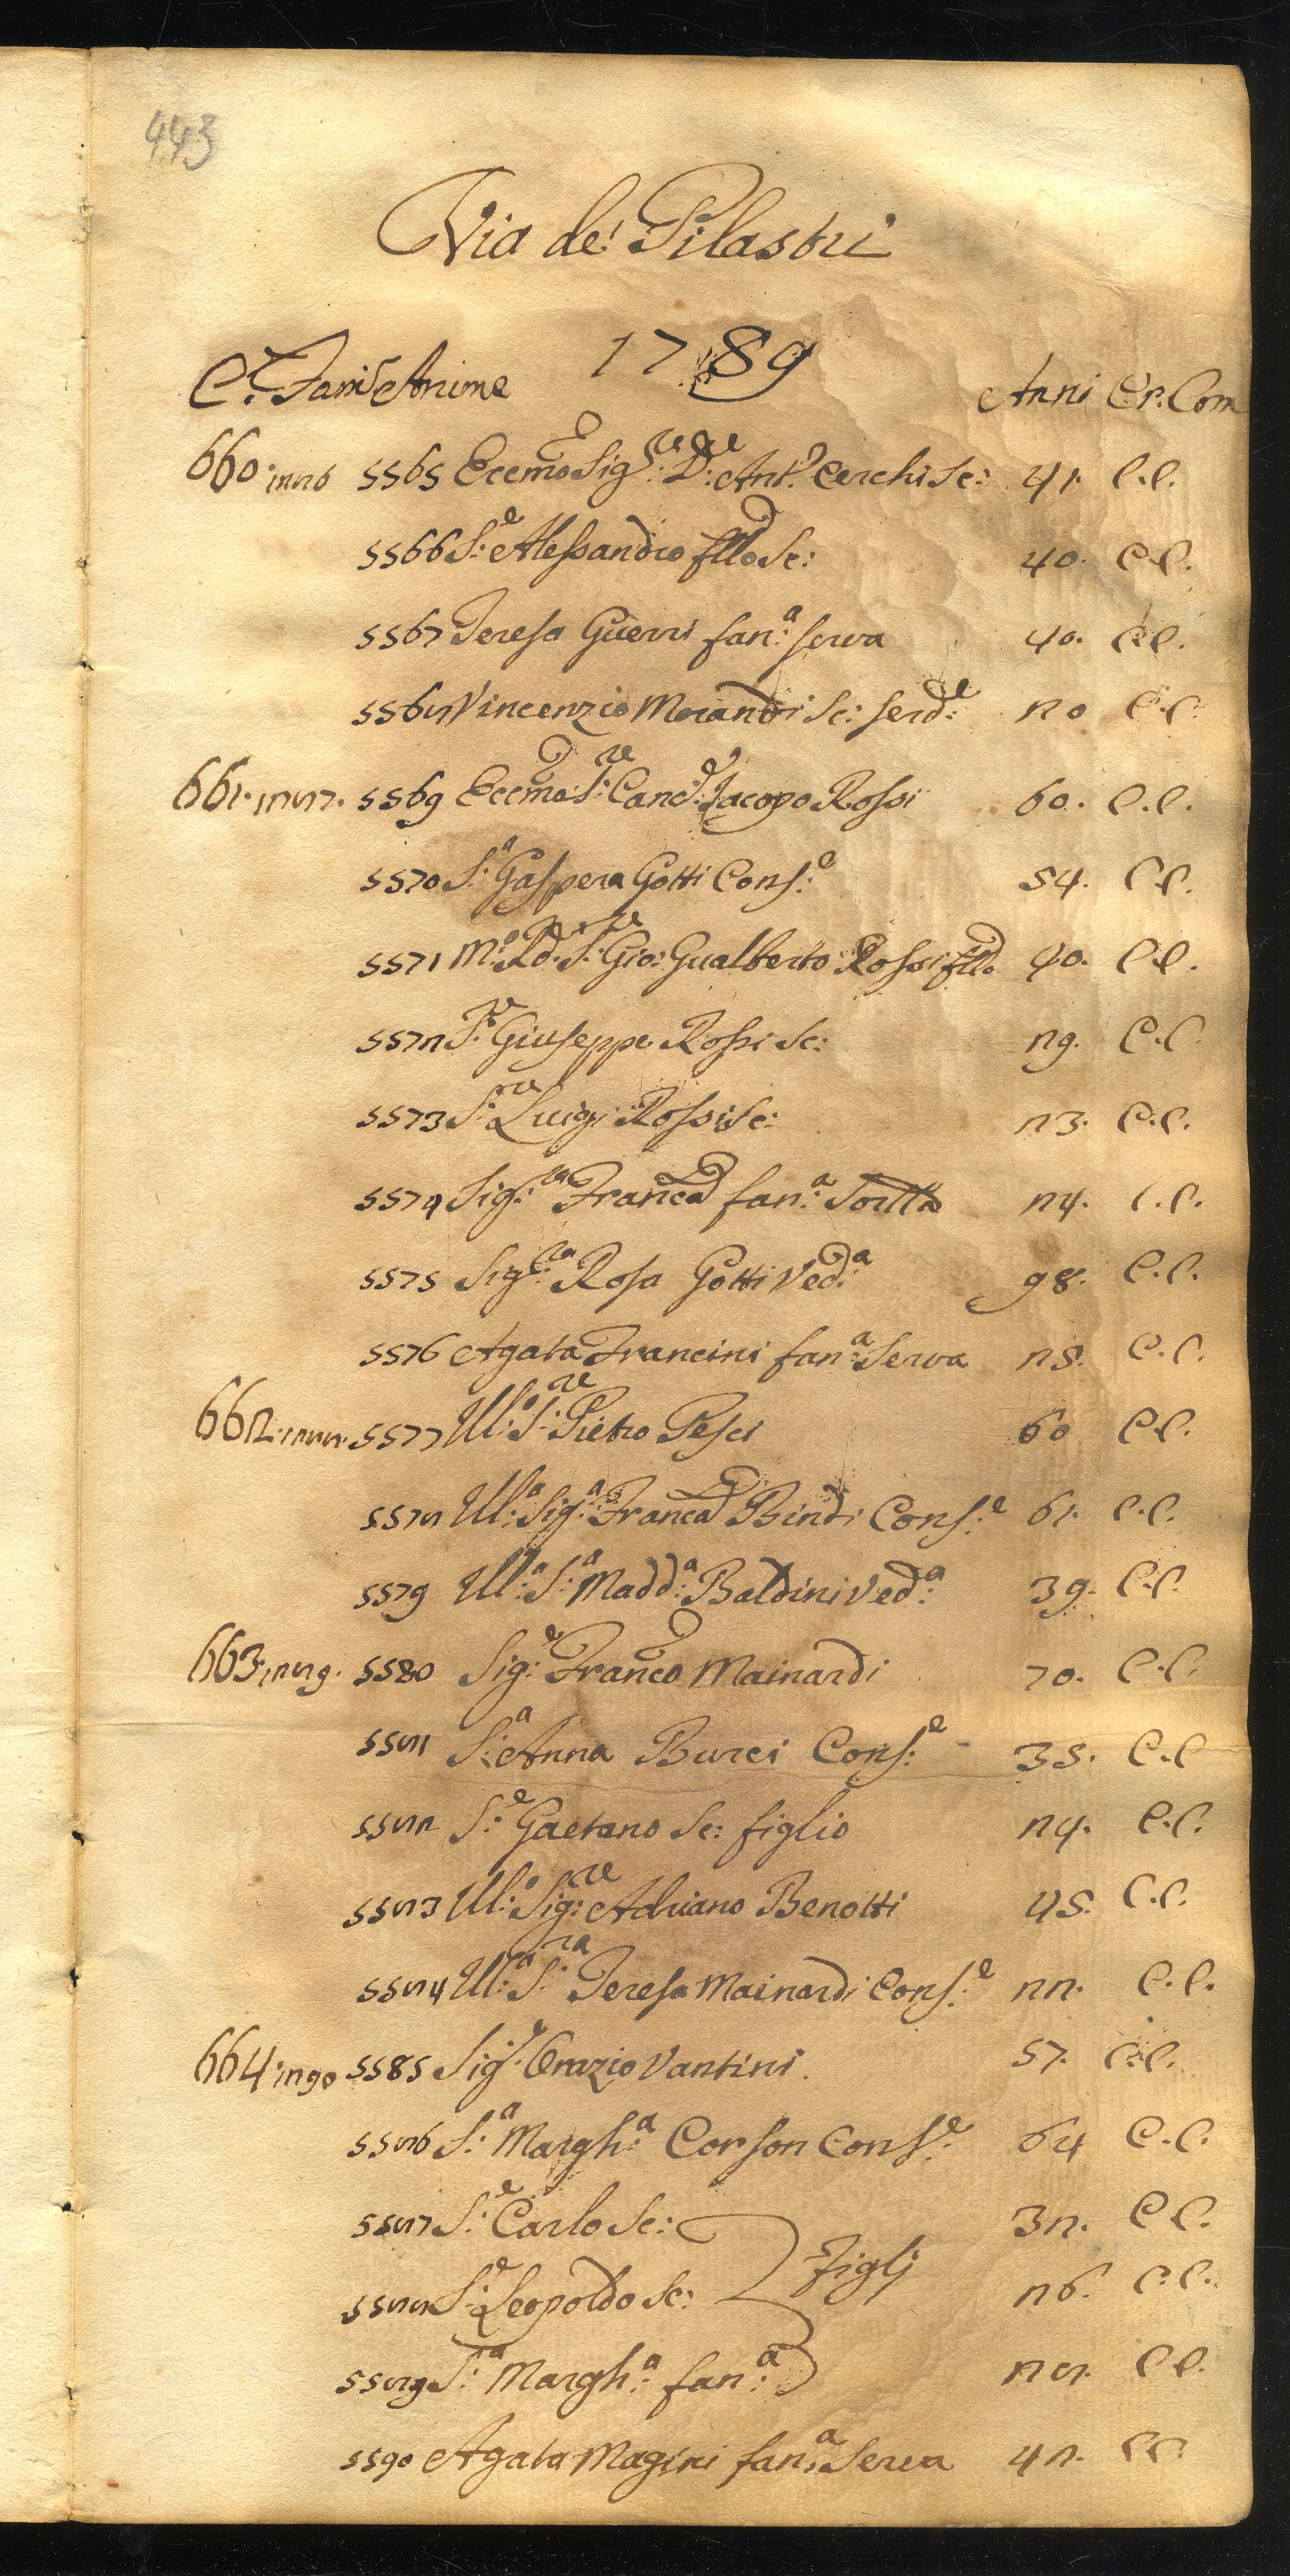 443
Via de' Pilastri
1789
C.e Fam.e Anime Anni Cr. Com
660. 1226 5565 Eccmo Sig.re D.re Ant.o Cerchi Sc: 41. C.C.
5566 S.e Alessandro fllo Sc: 40. C.C.
5567 Teresa Guerri fan.a serva 40. C.C.
5568 Vincenzio Morandi Sc: serd.e 20 C.C.
661. 5569 Eccmo S.re Canc.e Jacopo Rossi 60. C.C.
5570 S.a Gaspera Gotti Cons.e 54. C.C.
5571 M.o Rd. S.re Gio: Gualberto Rossi fllo 40. C.C.
5572 S.re Giuseppe Rossi Sc: 29. C.C.
5573 S.re Luigi Rossi Sc: 23. C.C.
5574 Sig.ra Franca fan.a Sorlla 24. C.C.
5575 Sig.ra Rosa Gotti Ved.a 98. C.C.
5576 Agata Francini fan.a Serva 25. C.C.
662. 5577 Ill.o S.re Pietro Pesci 60 C.C.
5578 Ill.a Sig.a Franca Bindi Cons.e 61. C.C.
5579 Ill.a S.a Madd.a Baldini Ved.a 39. C.C.
663. 1289. 5580 Sig.e Franco Mainardi 70. C.C.
5581 S.a Anna Burci Cons.e 35. C.C
5582 S.e Gaetano Sc: figlio 24. C.C.
5583 Ill.o Sig.re Adriano Benotti 45. C.C.
5584 Ill.a S.ra Teresa Mainardi Cons.e 22. C.C.
664. 1290 5585 Sig.e Orazio Vantini. 57. C.C.
5586 S.a Margh.a Corson Cons.e 64 C.C.
5587 S.e Carlo Sc: 32. C C.
Figlj
5588 S.e Leopoldo Sc: 26. C.C.
5589 S.a Margh.a fan.a 28. C C.
5590 Agata Magini fan.a Serva 42. C C